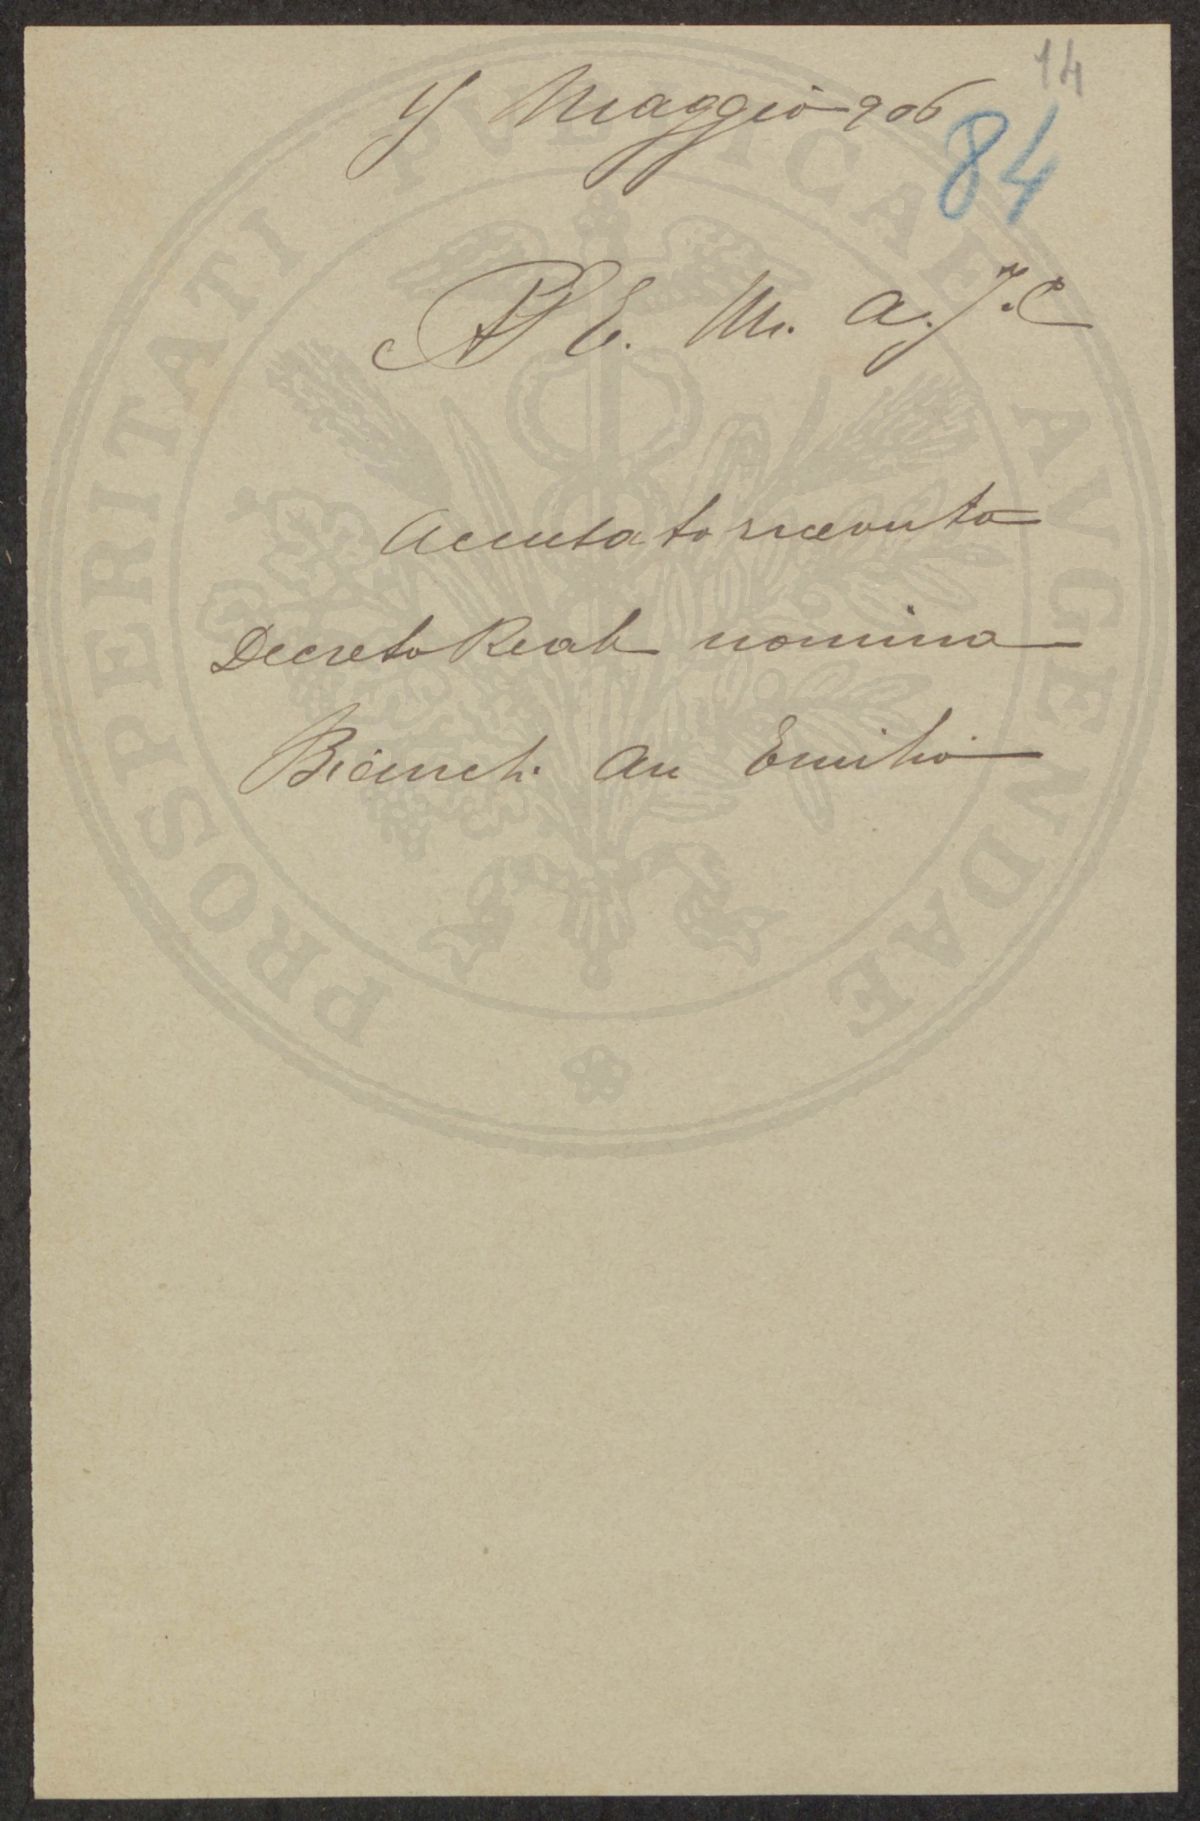 14
Maggio 906
84
A S. E. M. A. I. C
Accusato ricevuta
Decreto Reale nomina
Bianchi Avv Emilio
PROSPERITATI PVBLICAE AVGENDAE